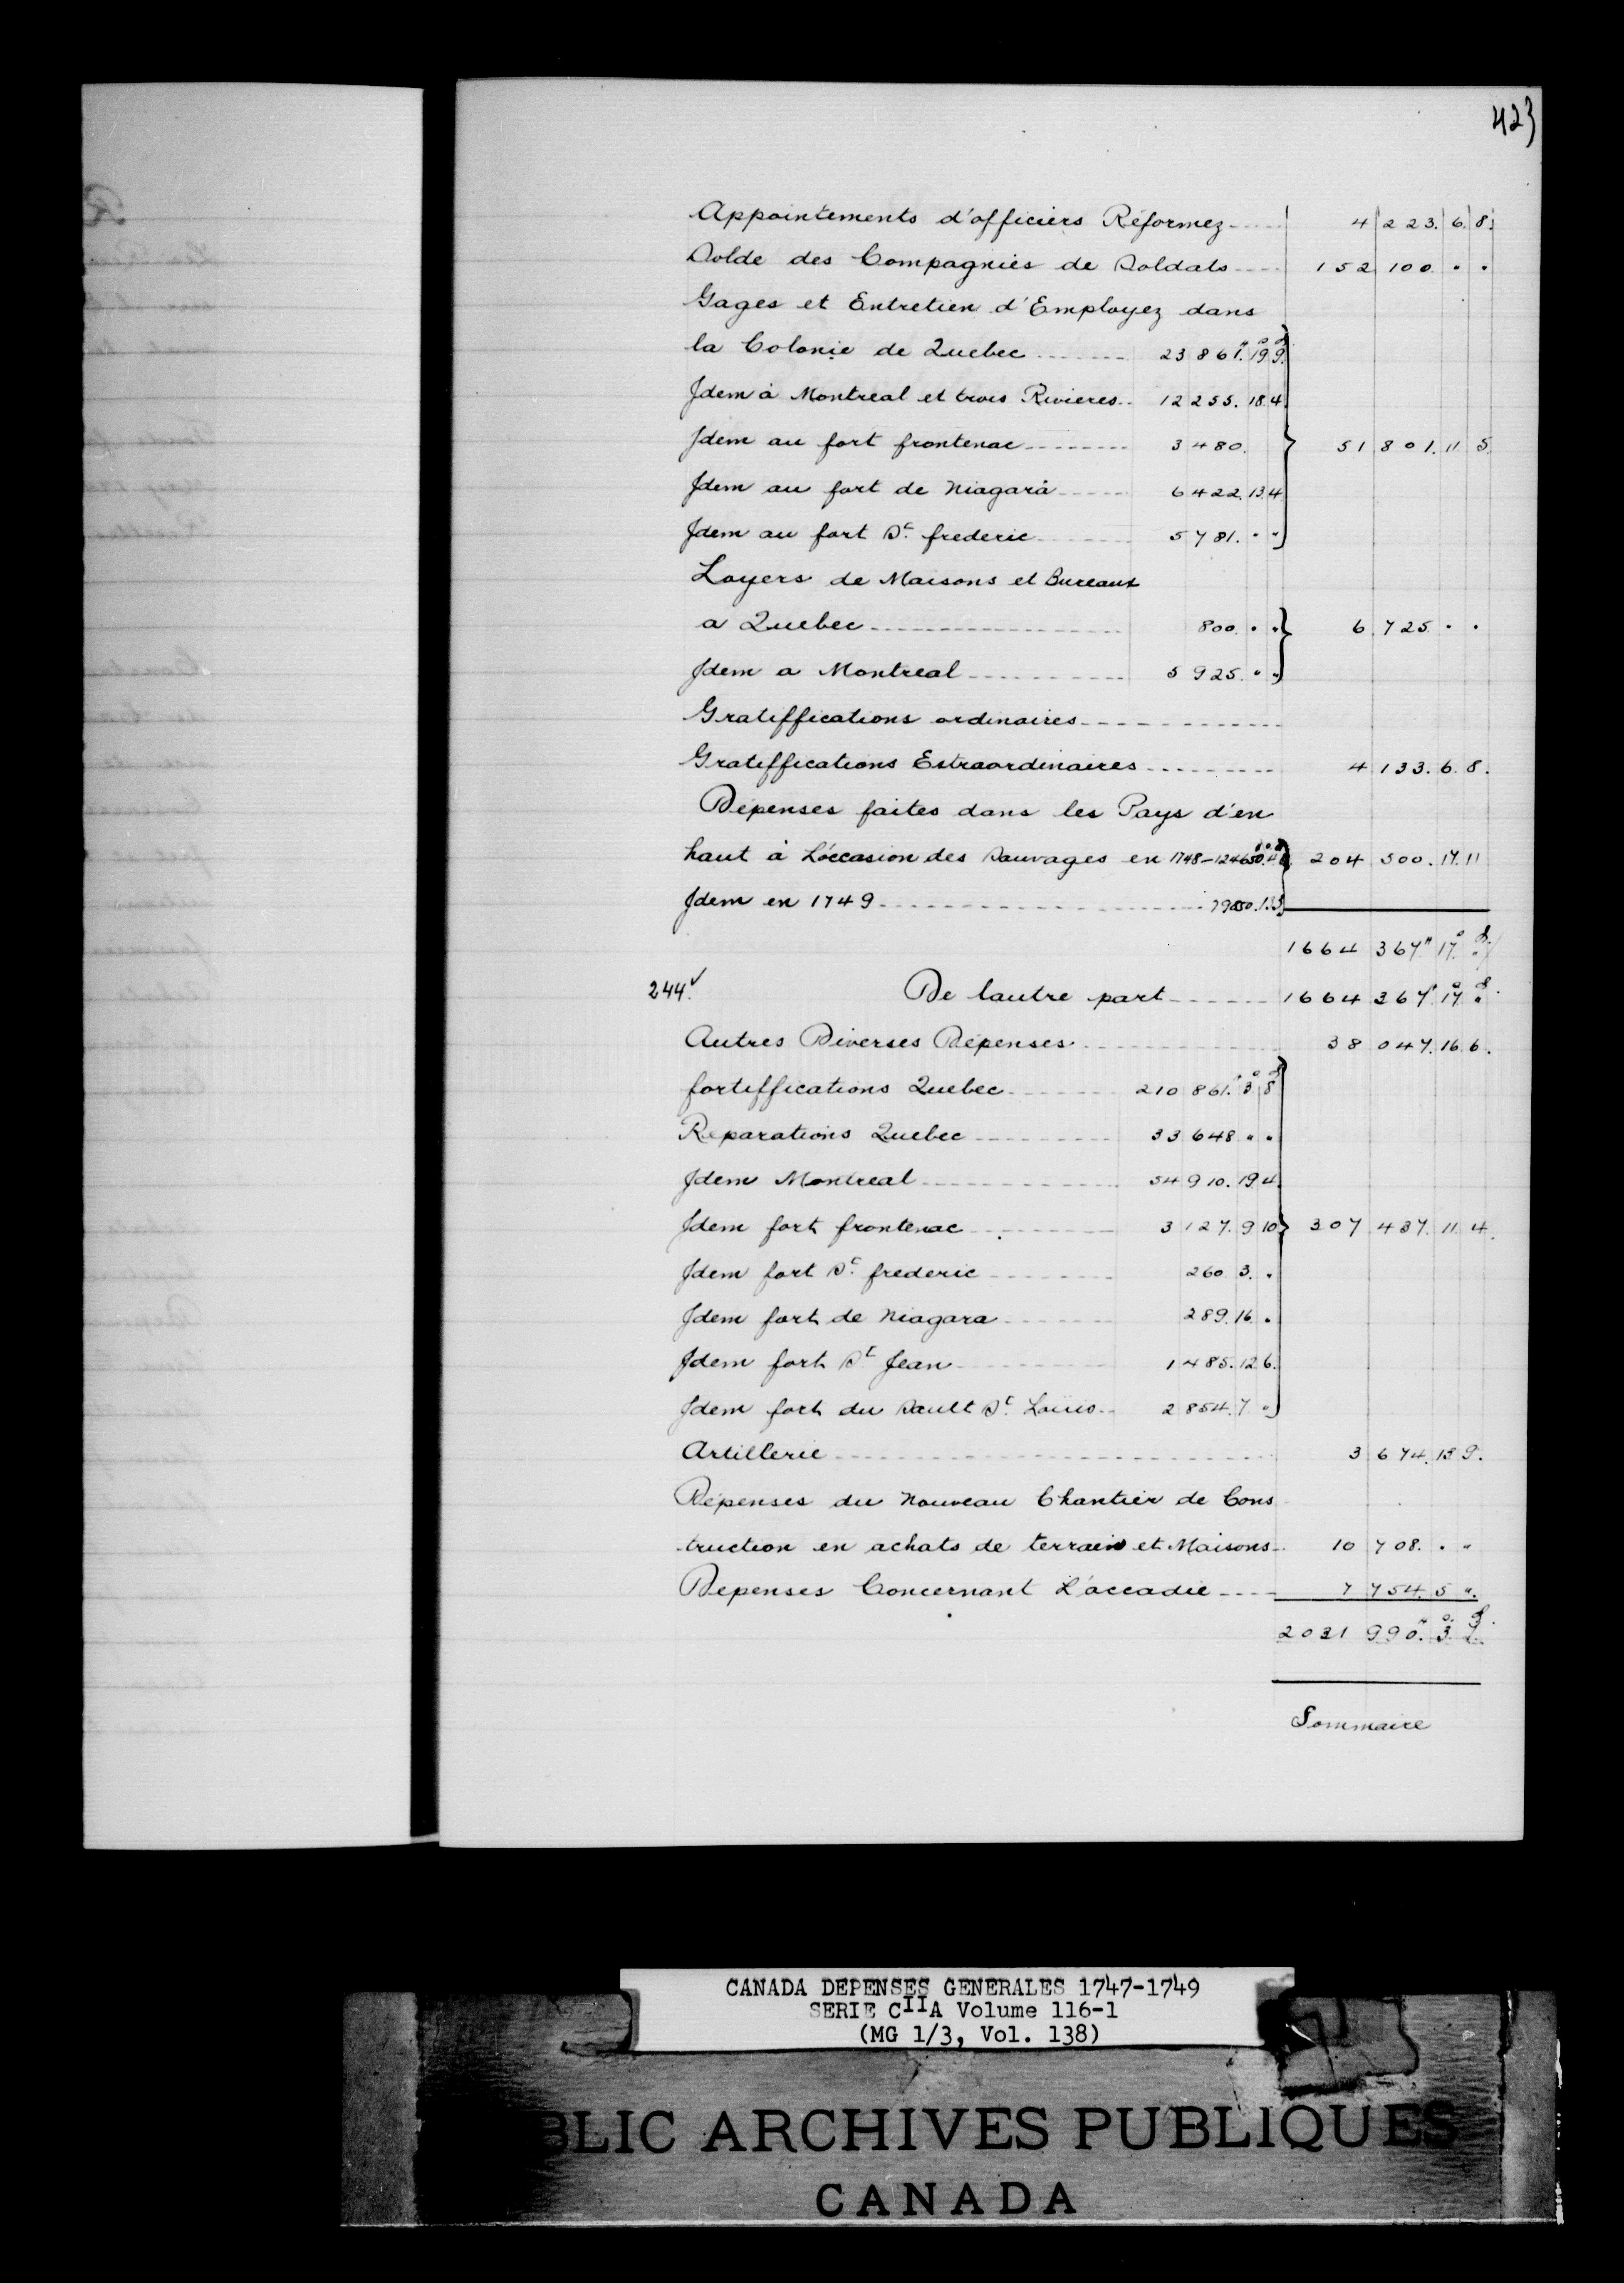 423
Appointements d'officiers Réformez 4 223. 6. 8.
Solde des Compagnies de Soldats 152 100 " "
Gages et Entretien d'Employez dans
la Colonie de Quebec 23 861.# 19.s 9.d
Idem à Montreal et trois Rivieres 12 255. 18. 4.
Idem au fort frontenac 3 480. } 51 801. 11. 5.
Idem au fort de Niagara 6 422. 13. 4
Idem au fort St. frederic 5 781. " "
Loyers de Maisons et Bureaux
a Quebec 800. " " } 6 725. " "
Idem a Montreal 5 925. " "
Gratiffications ordinaires
Gratiffications Extraordinaires 4 133. 6. 8.
Dépenses faites dans les Pays d'en
haut à L'occasion des Sauvages en 1748 - 124650. 4. 8 } 204 500. 17. 11
Idem en 1749 79850. 13. 3
1664 367.# 17.s "d
244. De lautre part 1664 367.# 17.s "d
Autres Diverses Dépenses 38 047. 16. 6.
fortiffications Quebec 210 861.# 3.s 8d
Reparations Quebec 33 648 " "
Idem Montreal 54 910. 19. 4.
Idem fort frontenac 3 127. 9. 10 } 307 437. 11. 4.
Idem fort St. frederic 260 3. "
Idem fort de Niagara 289. 16. "
Idem fort St. Jean 1 485. 12. 6.
Idem fort du Sault St. Louis 2 854. 7 "
Artillerie 3 674. 13 9.
Dépenses du Nouveau Chantier de Cons
truction en achats de terrain et Maisons 10 708. " "
Depenses Concernant L'accadie 7 754. 5 ".
2031 990.# 3.s d
Sommaire
CANADA DEPENSES GENERALES 1747-1749
SERIE CIIA Volume 116-1
(MG 1/3, Vol. 138)
BLIC ARCHIVES PUBLIQUES
CANADA